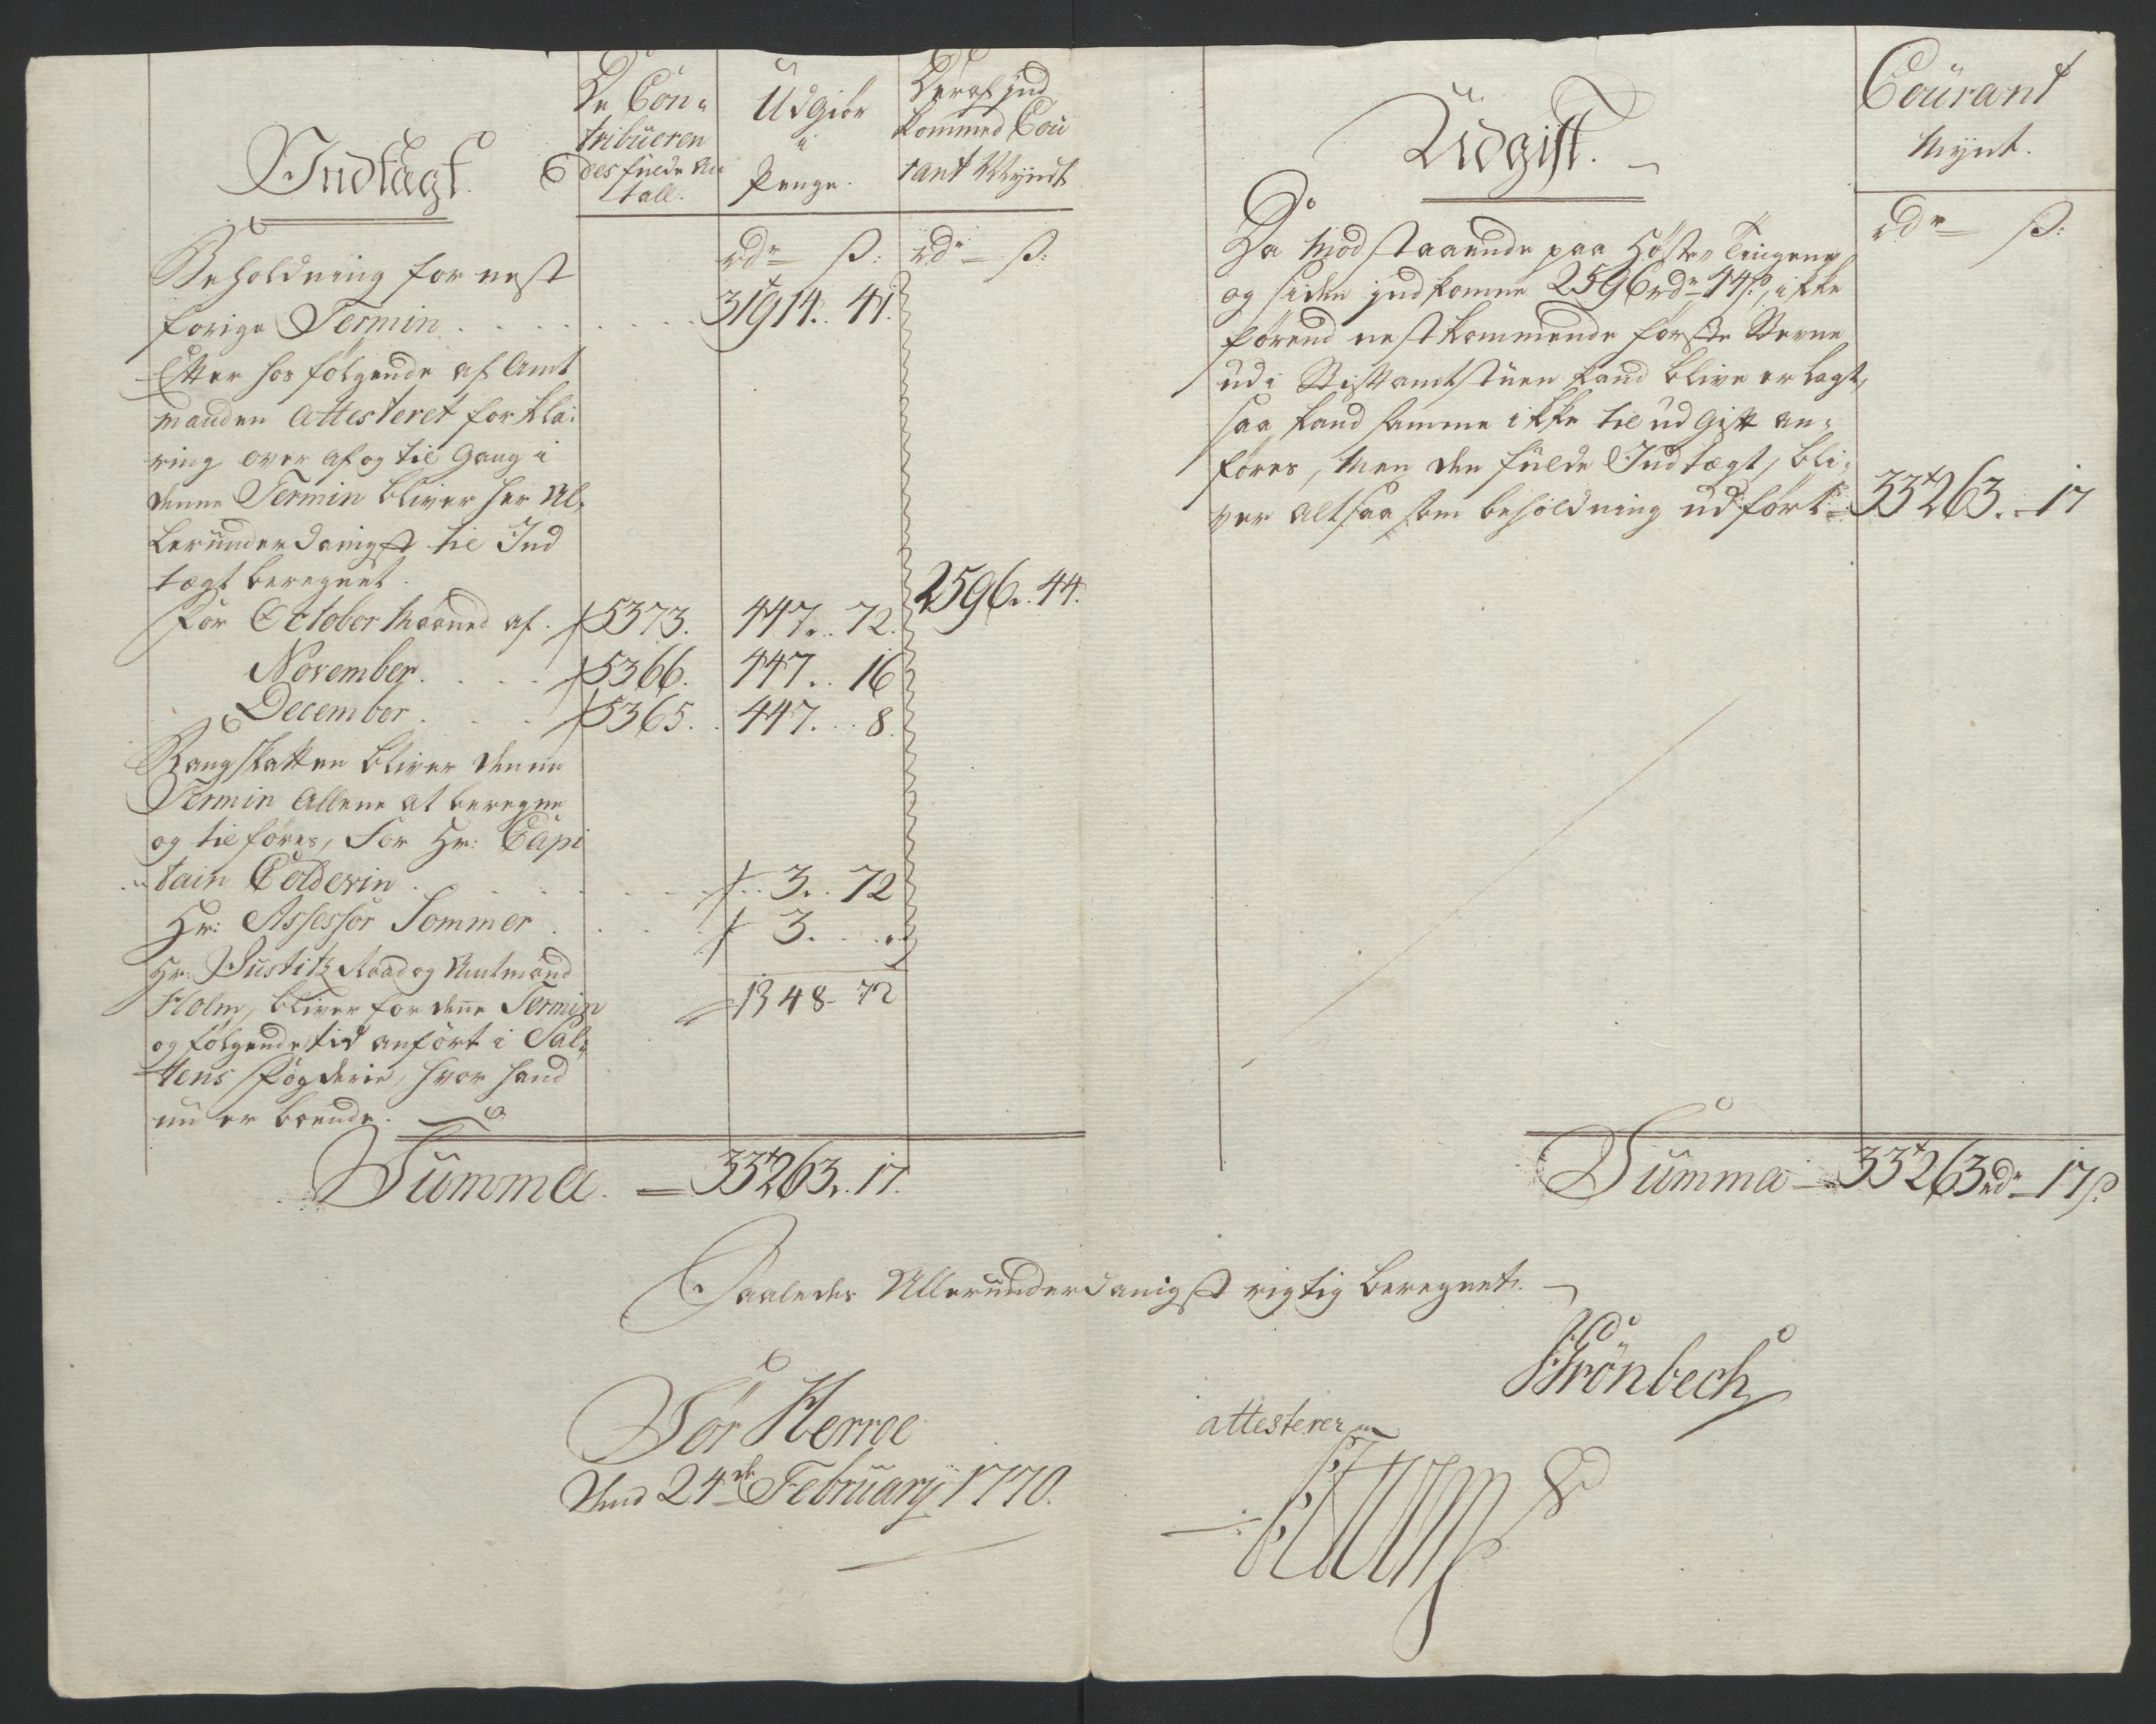 Indtægt.
De Con-
tribueren
des fulde An
tall.
Udgiør
i
Penge.
Deraf jnd
kommed Cou
rant Myndt
rdr ß: rdr ß:
Beholdning for nest
forige Termin . . . . . . . . 31914. 41.
Efter hos følgende af Amt
manden Attesteret forkla:
ring over af og til Gang i
denne Termin bliver her Al-
lerunderdanigst til Ind
tægt beregnet. 2596. 44.
For October Maaned af. 5373. 447. 72.
November. . . . 5366. 447. 16
December . . . 5365. 447. 8.
Rangskatten bliver denne
Termin Allene at beregne
og tilføres, for Hr: Capi
tain Colderin . . . . . . . 3. 72
Hr: Assessor Sommer . . . . 3. . .
Hr: Justitz Raad og Amtmand 
Holm, bliver for denne Termin 1348- 72
og følgende tid anført i Sal-
tens Fogderie, hvor hand
nu er boende.
Summa. 33263. 17.
Udgift.
Courant
Mynt.
rdr ß:
Da modstaaende paa Høste Tingene,
og siden jndkomne 2596 rdr 44ß, ikke
førend nestkommende første Stevne
ud i Stiftamtstuen kand blive erlagt,
saa kand samme ikke til udgift an-
føres, Men den fulde Indtægt, bli-
ver altsaa som beholdning udført 33263. 17
Summa 33263 rdr 17ß.
Saaledes Allerunderdanigst rigtig beregnet.
Sør Herroe
Dend 24de February 1770.
Grönbech
attesterer
Holm